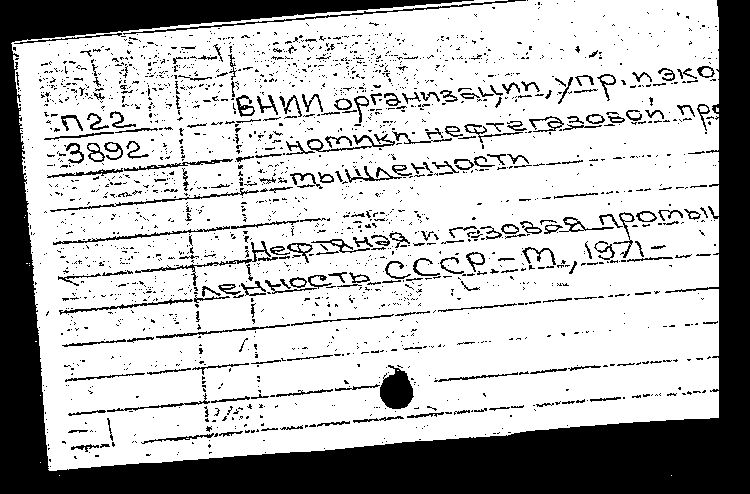 ВНИИ организации, упр. и эко
П22
номики нефтегазовой про
3892
мышленности
Нефтяная и газовая промыш
ленность СССР. – М., 1971 –